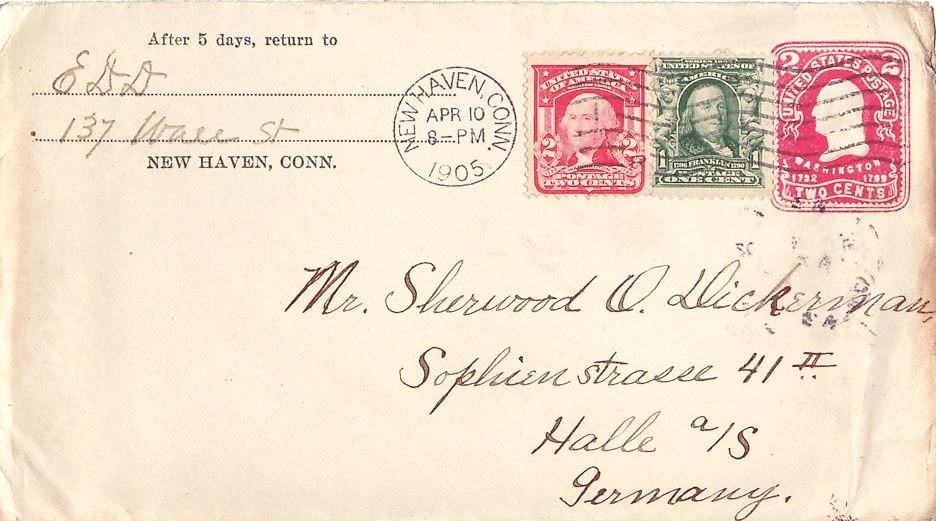 After 5 days, return to
E D D
137 Wall St
NEW HAVEN, CONN.
NEW HAVEN, CONN.
APR 10
8-PM
1905
UNITED STATES
OF AMERICA
2 2
POSTAGE
TWO CENTS
SERIES 1902
UNITED STATES OF
AMERICA
1 FRANKLIN 1
POSTAGE
ONE CENT
2 2
UNITED STATES POSTAGE
WASHINGTON
1732 1799
TWO CENTS
Mr. Sherwood O. Dickerman,
Sophienstrasse 41 II
Halle a/S
Germany.